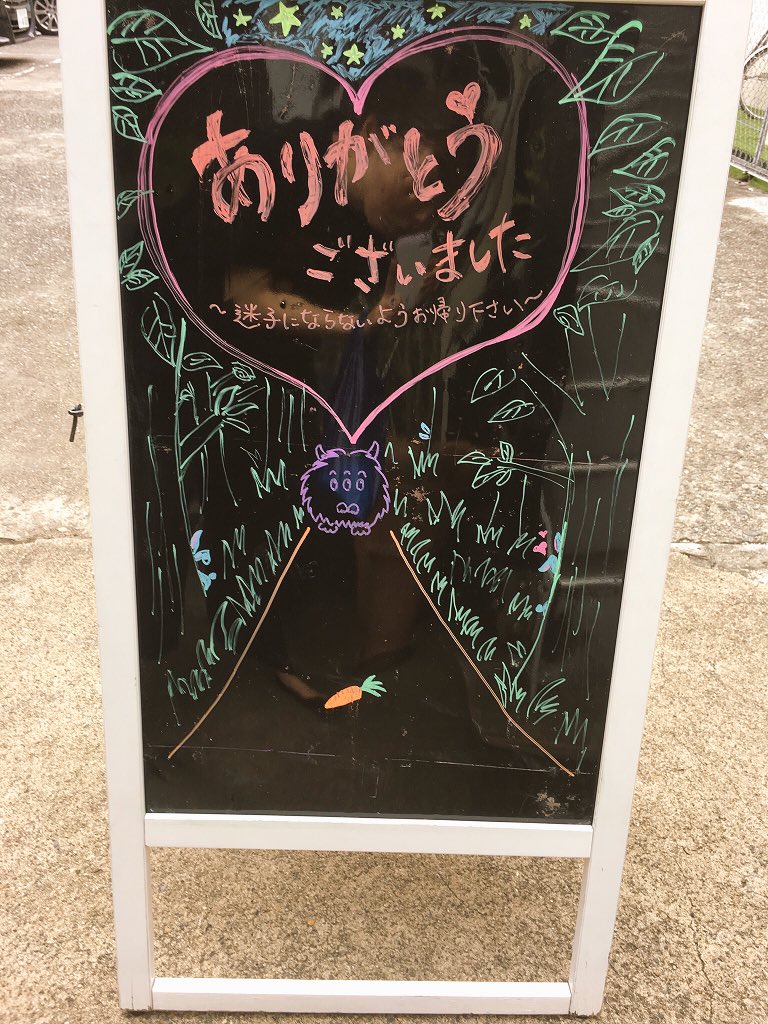 ありがとう
ございました
～迷子にならないようお帰り下さい～